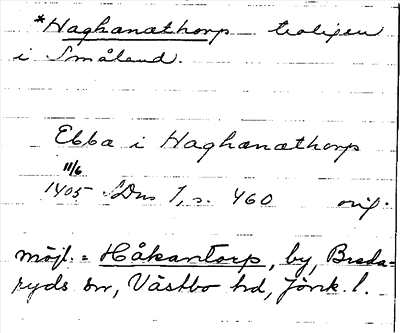 *Haghanathorp troligen
i Småland.
Ebba i Haghanathorp
11/6
1405 SDns 1, s. 460 orig.
möjl. = Håkantorp, by, Breda-
ryds sn, Västbo hd, Jönk. l.